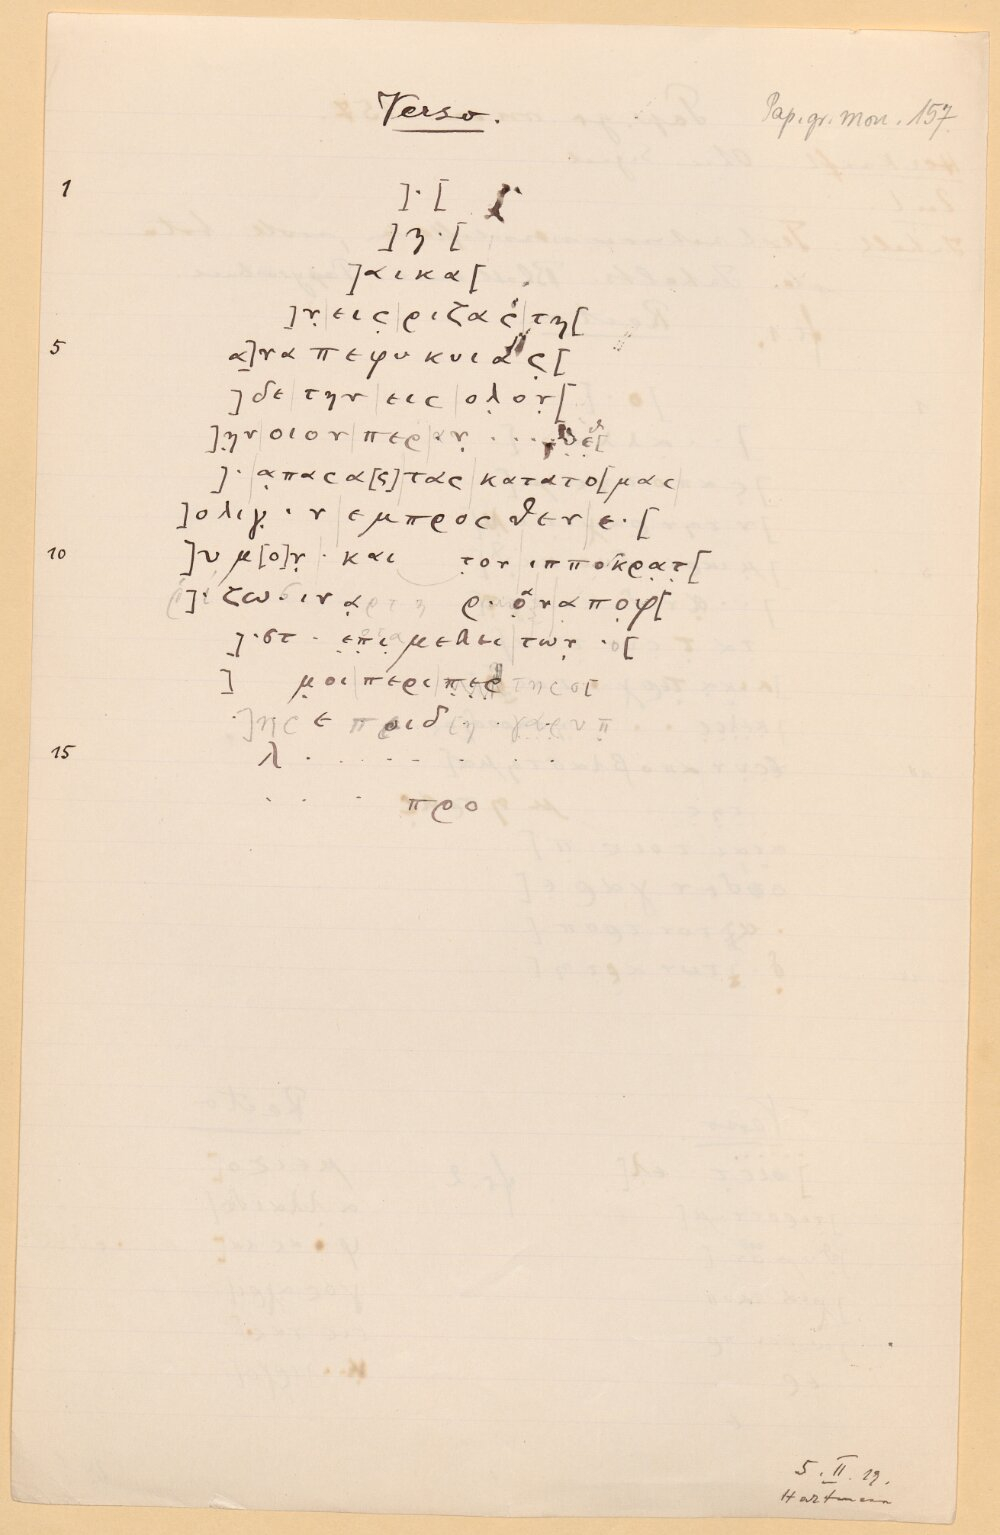 Verso.
Pap. gr. mon. 157
1 ] · [
] η · [
] α ι κ α [
] ν̣ | ε ι ς | ρ ι ζ α ς | τ η [
5 α ] ν α π ε φ υ κ υ ι α ς̣ [
] δ ε | τ η ν | ε ι ς | ο λ̣ ο ν̣ [
] η̣ ν | ο ι ο ν | π ε ρ | α ν̣ · · ·
] · α̣ π α ς α [ς] | τ α ς | κ α τ α τ ο [ μ α ς
] ο λ ι γ̣ · ν | ε μ π ρ ο ς θ ε ν | ε · [
10 ] υ μ [ο] ν̣ · κ α ι τ̣ ο ν ι π π ο κ ρ̣ α̣ τ̣ [
] · ζ ω · ι ν α̣ ρ · ο̣ ν α π ο̣ φ [
] · σ τ · ε̣ π̣ ι̣ μ ε λ ε ι | τ ω ν̣ · [
] μ̣ ο ι | π ε ρ ι | π̣ ε̣ ρ̣ τ η ς ο [
] η ς ε π ρ ι δ
15 λ · · · · · · ·
· · · π ρ ο
5. II. 19.
Hartmann